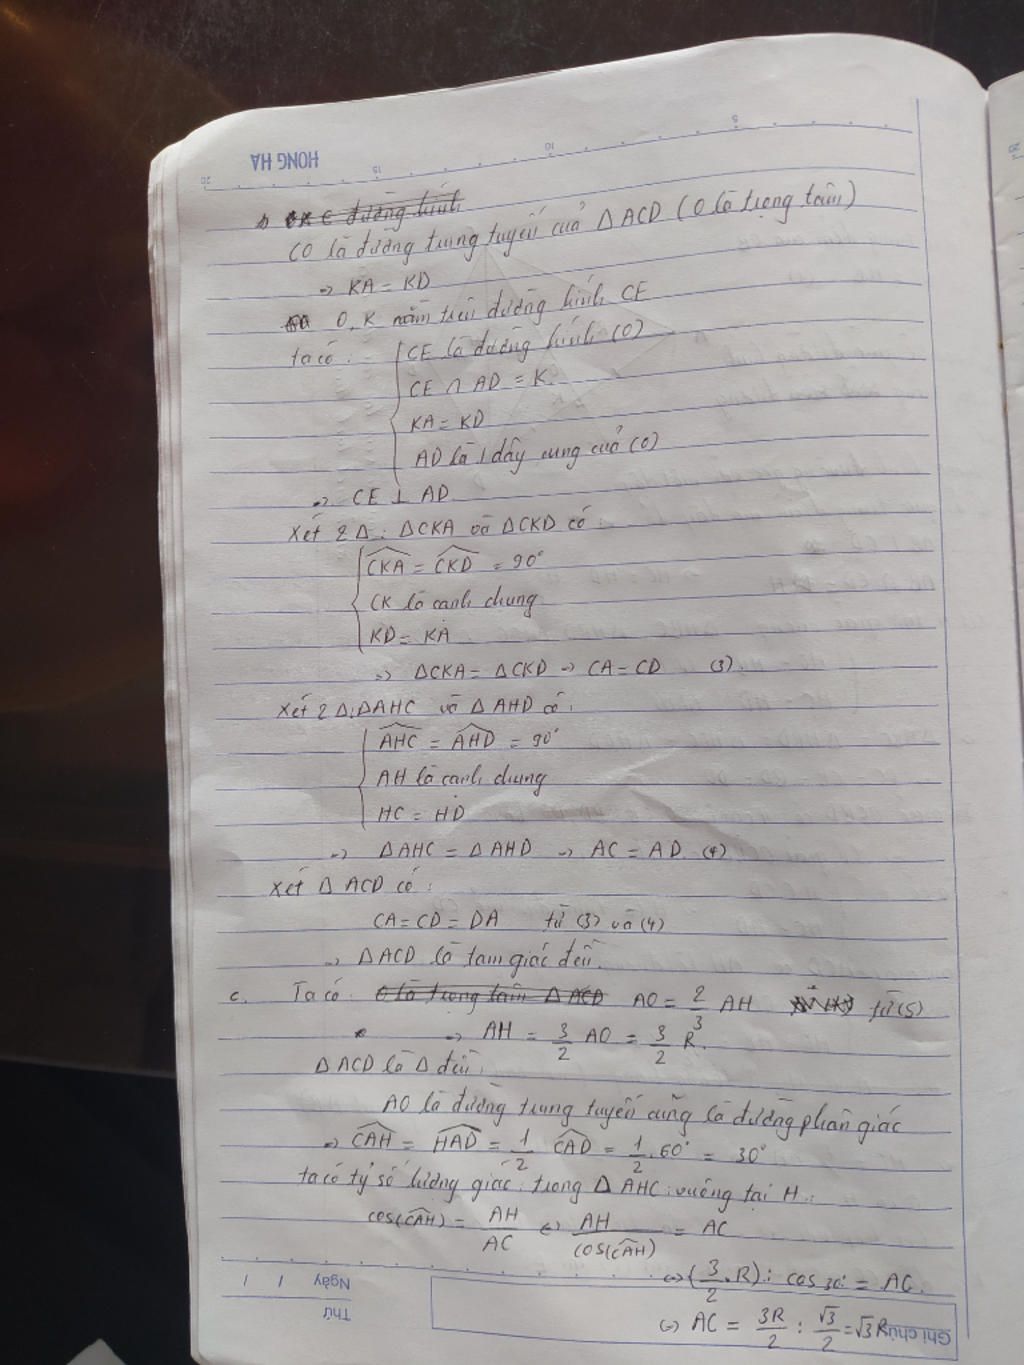 HONG HA
20 15 10 5
b) OK C đường kính
CO là đường trung tuyến của Δ ACD (O là trọng tâm)
=> KA = KD
O, K nằm trên đường kính CE
ta có: CE là đường kính (O)
CE ∩ AD = K
KA = KD
AD là 1 dây cung của (O)
=> CE ⊥ AD
Xét 2 Δ: ΔCKA và ΔCKD có:
CKA = CKD = 90°
CK là cạnh chung
KD = KA
=> ΔCKA = ΔCKD => CA = CD (3)
Xét 2 Δ: ΔAHC và Δ AHD có:
AHC = AHD = 90°
AH là cạnh chung
HC = HD
=> ΔAHC = ΔAHD => AC = AD (4)
Xét Δ ACD có:
CA = CD = DA từ (3) và (4)
=> ΔACD là tam giác đều.
c. Ta có: O là trọng tâm Δ ACD AO = 2/3 AH từ (5)
=> AH = 3/2 AO = 3/2 R.
ΔACD là Δ đều:
AO là đường trung tuyến cũng là đường phân giác
=> CAH = HAD = 1/2 CAD = 1/2 . 60° = 30°
ta có tỷ số lượng giác: trong Δ AHC: vuông tại H:
cos(CAH) = AH/AC <=> AH/cos(CAH) = AC
<=> (3/2 . R) : cos 30° = AC.
<=> AC = 3R/2 : √3/2 = √3 R
Ngày / /
Thứ
Ghi chú